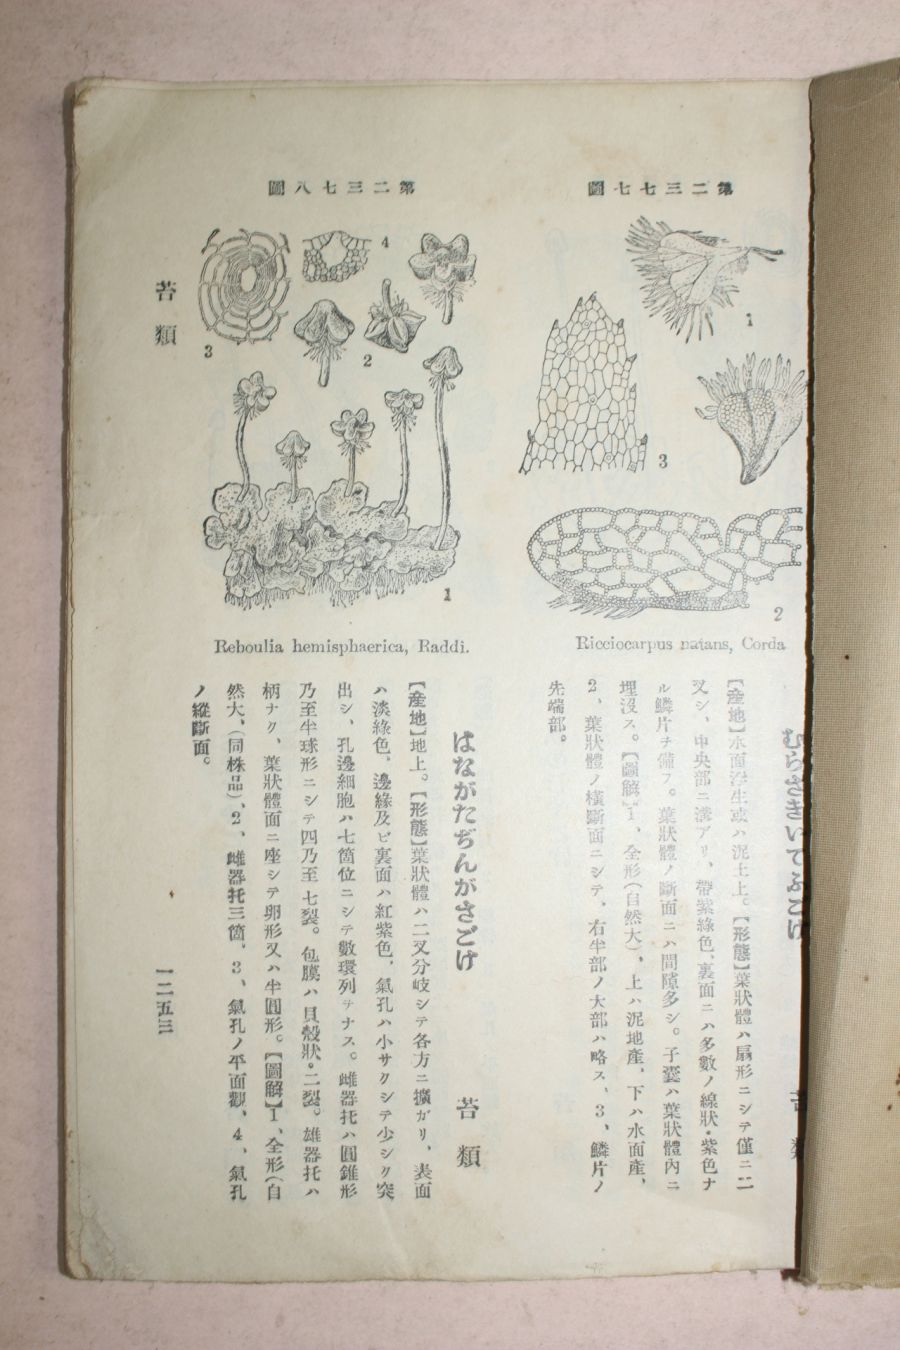 第二三七七圖
1
3
2
Ricciocarpus natans, Corda
むらさきいてふごけ
苔類
【産地】水面浮生或ハ泥土上。【形態】葉狀體ハ扇形ニシテ僅ニ二
叉シ、中央部ニ溝アリ、帶紫綠色、裏面ニハ多數ノ線狀・紫色ナ
ル鱗片ヲ備フ。葉狀體ノ斷面ニハ間隙多シ。子囊ハ葉狀體內ニ
埋沒ス。【圖解】1、全形(自然大)、上ハ泥地產、下ハ水面產、
2、葉狀體ノ橫斷面ニシテ、右半部ノ大部ハ略ス、3、鱗片ノ
先端部。
第二三七八圖
4
3
2
1
Reboulia hemisphaerica, Raddi.
はながたぢんがさごけ
苔類
【産地】地上。【形態】葉狀體ハ二叉分岐シテ各方ニ擴ガリ、表面
ハ淡綠色、邊緣及ビ裏面ハ紅紫色、氣孔ハ小サクシテ少シク突
出シ、孔邊細胞ハ七箇位ニシテ數環列ヲナス。雌器托ハ圓錐形
乃至半球形ニシテ四乃至七裂。包膜ハ貝殼狀・二裂。雄器托ハ
柄ナク、葉狀體面ニ座シテ卵形又ハ半圓形。【圖解】1、全形(自
然大、(同株品)、2、雌器托三箇、3、氣孔ノ平面觀、4、氣孔
ノ縱斷面。
苔類
一二五三